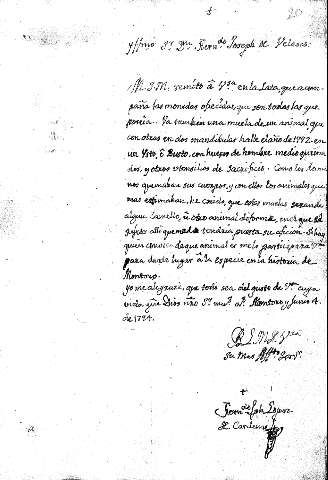 Yllmo Sr. Dn. Ferndo Joseph de Velasco:
M. S. M. remito â Vsa en la Caxa, que acom-
paña las monedas ofrecidas, que son todas las que
poseia. Va tambien una muela de un animal, que
con otras en dos mandibulas hallè el año de 1792. en
un Vsto, ô Busto, con huesos de hombre medio quema-
dos, y otros utensilios de Sacrificio. Como los Roma-
nos quemaban sus cuerpos, y con ellos los animales que
mas estimaban, he creido, que estas muelas seran de
algun Camello, ù otro animal disforme, en el que el
sujeto alli quemado tendria puesta su aficion. Si hay
quien conozca de que animal es me lo participarà Vsa
para darle lugar â la especie en la historia de
Montoro.
Yo me alegraré, que todo sea del gusto de Vsa cuya
vida gue. Dios nro Sr. ms. as. Montoro y Junio 4.
de 1794.
B. L. M. de Vsa
su mas Affto Servr.
Ferndo Joh Lopez
de Cardenas